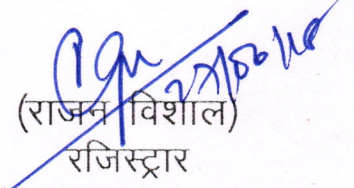 (राजन विशाल)
रजिस्ट्रार